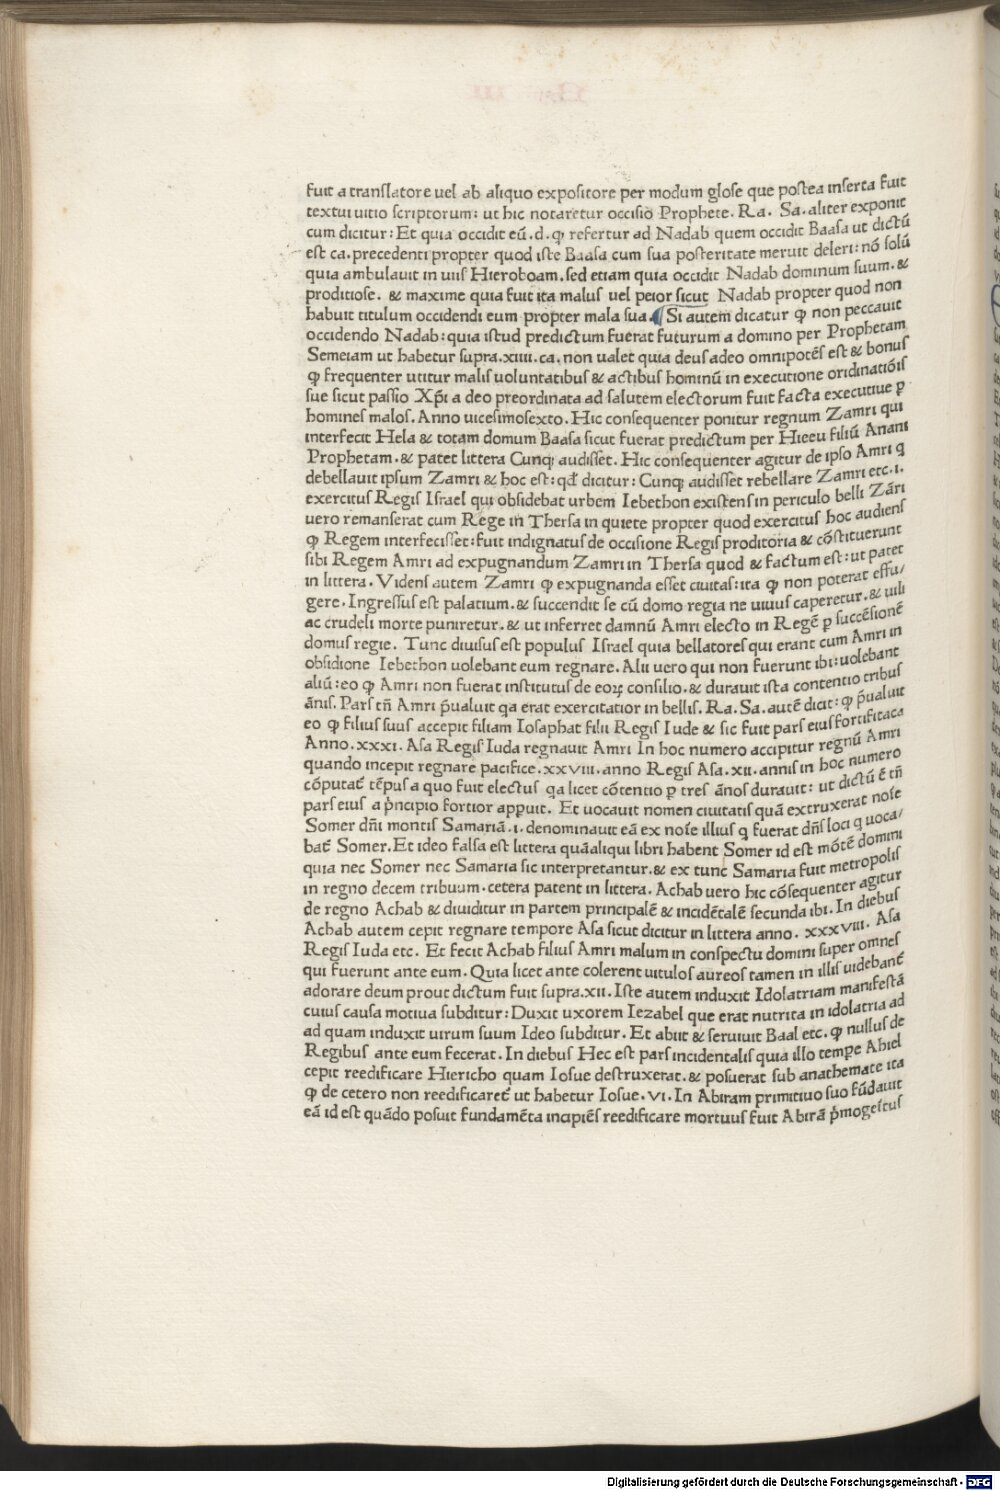 fuit a translatore uel ab aliquo expositore per modum glose que postea inserta fuit
textui uitio scriptorum: ut hic notaretur occisio Prophete. Ra. Sa. aliter exponit
cum dicitur: Et quia occidit eū. d. ꝙ refertur ad Nadab quem occidit Baasa ut dictū
est ca. precedenti propter quod iste Baasa cum sua posteritate meruit deleri: nō solū
quia ambulauit in uiis Hieroboam. sed etiam quia occidit Nadab dominum suum. &
proditiose. & maxime quia fuit ita malus uel peior sicut Nadab propter quod non
habuit titulum occidendi eum propter mala sua. ¶ Si autem dicatur ꝙ non peccauit
occidendo Nadab: quia istud predictum fuerat futurum a domino per Prophetam
Semeiam ut habetur supra. xiiii. ca. non ualet quia deus adeo omnipotēs est & bonus
ꝙ frequenter utitur malis uoluntatibus & actibus hominū in executione oridinatiōis
sue sicut passio Xp̄i a deo preordinata ad salutem electorum fuit facta executiue ꝑ
homines malos. Anno uicesimosexto. Hic consequenter ponitur regnum Zamri qui
interfecit Hela & totam domum Baasa sicut fuerat predictum per Hieeu filiū Anani
Prophetam. & patet littera Cunqꝫ audisset. Hic consequenter agitur de ipso Amri q̄
debellauit ipsum Zamri & hoc est: qđ dicitur: Cunqꝫ audisset rebellare Zamri etc. i.
exercitus Regis Israel qui obsidebat urbem Iebethon existens in periculo belli Zāri
uero remanserat cum Rege in Thersa in quiete propter quod exercitus hoc audiens
ꝙ Regem interfecisset: fuit indignatus de occisione Regis proditoria & cōstituerunt
sibi Regem Amri ad expugnandum Zamri in Thersa quod & factum est: ut patet
in littera. Videns autem Zamri ꝙ expugnanda esset ciuitas: ita ꝙ non poterat effu/
gere. Ingressus est palatium. & succendit se cū domo regia ne uiuus caperetur. & uili
ac crudeli morte puniretur. & ut inferret damnū Amri electo in Regē ꝑ succēsionē
domus regie. Tunc diuisus est populus Israel quia bellatores qui erant cum Amri in
obsidione Iebethon uolebant eum regnare. Alii uero qui non fuerunt ibi: uolebant
aliū: eo ꝙ Amri non fuerat institutus de eoꝝ consilio. & durauit ista contentio tribus
ānis. Pars tn̄ Amri p̄ualuit qa erat exercitatior in bellis. Ra. Sa. autē dicit: ꝙ p̄ualuit
eo ꝙ filius suus accepit filiam Iosaphat filii Regis Iude & sic fuit pars eius fortificata
Anno. xxxi. Asa Regis Iuda regnauit Amri In hoc numero accipitur regnū Amri
quando incepit regnare pacifice. xxviii. anno Regis Asa. xii. annis in hoc numero
cōputat̄ tēpus a quo fuit electus qa licet cōtentio ꝑ tres ānos durauit: ut dictū ē tn̄
pars eius a p̄ncipio fortior appuit. Et uocauit nomen ciuitatis quā extruxerat noīe
Somer dn̄i montis Samariā. i. denominauit eā ex noīe illius q̄ fuerat dn̄s loci q̄ uoca/
bat̄ Somer. Et ideo falsa est littera quāaliqui libri habent Somer id est mōtē domini
quia nec Somer nec Samaria sic interpretantur. & ex tunc Samaria fuit metropolis
in regno decem tribuum. cetera patent in littera. Achab uero hic cōsequenter agitur
de regno Achab & diuiditur in partem principalē & incidētalē secunda ibi. In diebus
Achab autem cepit regnare tempore Asa sicut dicitur in littera anno. xxxviii. Asa
Regis Iuda etc. Et fecit Achab filius Amri malum in conspectu domini super omnes
qui fuerunt ante eum. Quia licet ante colerent uitulos aureos tamen in illis uidebant̄
adorare deum prout dictum fuit supra. xii. Iste autem induxit Idolatriam manifestā
cuius causa motiua subditur: Duxit uxorem Iezabel que erat nutrita in idolatria ad
ad quam induxit uirum suum Ideo subditur. Et abiit & seruiuit Baal etc. ꝙ nullus de
Regibus ante eum fecerat. In diebus Hec est pars incidentalis quia illo tempe Abiel
cepit reedificare Hiericho quam Iosue destruxerat. & posuerat sub anathemate ita
ꝙ de cetero non reedificaret̄ ut habetur Iosue. vi. In Abiram primitiuo suo fūdauit
eā id est quādo posuit fundamēta incipiēs reedificare mortuus fuit Abirā p̄mogeītus
Digitalisierung gefördert durch die Deutsche Forschungsgemeinschaft - DFG